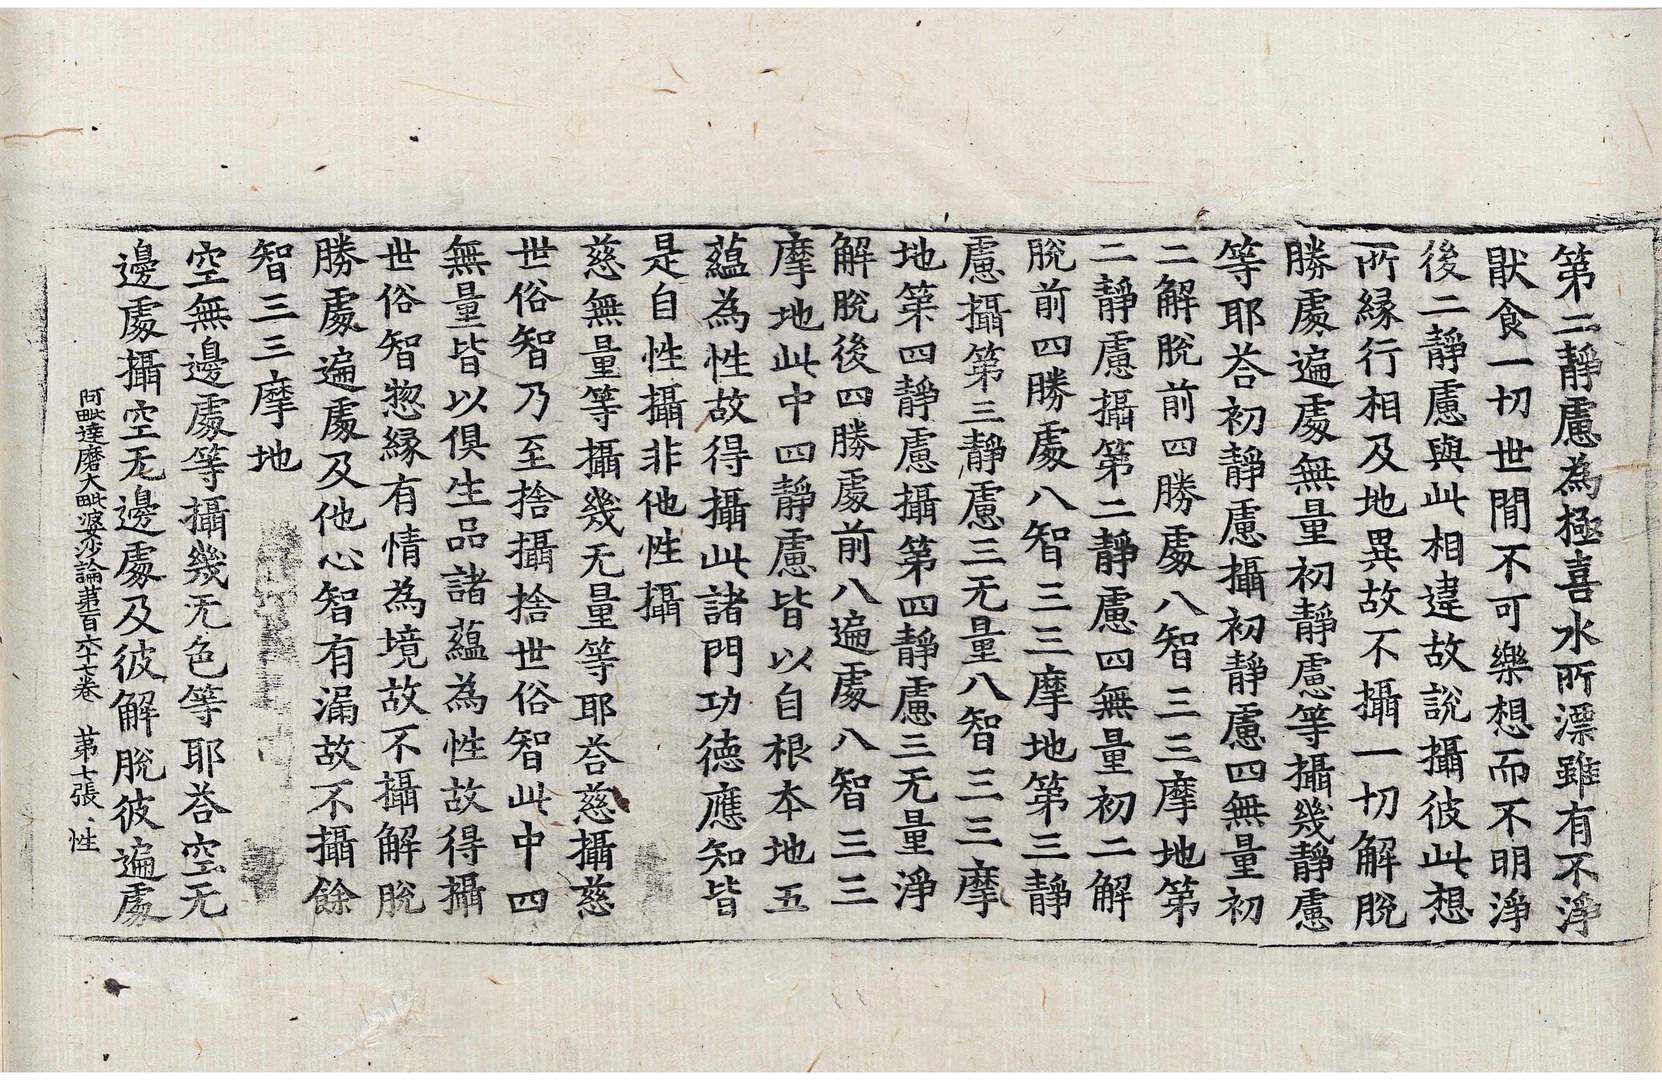 第二靜慮為極喜水所漂雖有不淨
猒食一切世間不可樂想而不明淨
後二靜慮與此相違故說攝彼此想
所縁行相及地異故不攝一切解脫
勝處遍處無量初靜慮等攝幾靜慮
等耶荅初靜慮攝初靜慮四無量初
二解脫前四勝處八智三三摩地第
二靜慮攝第二靜慮四無量初二解
脫前四勝處八智三三摩地第三靜
慮攝第三靜慮三无量八智三三摩
地第四靜慮攝第四靜慮三无量淨
解脫後四勝處前八遍處八智三三
摩地此中四靜慮皆以自根本地五
蘊為性故得攝此諸門功德應知皆
是自性攝非他性攝
慈無量等攝幾无量等耶荅慈攝慈
世俗智乃至捨攝捨世俗智此中四
無量皆以俱生品諸蘊為性故得攝
世俗智惣縁有情為境故不攝解脫
勝處遍處及他心智有漏故不攝餘
智三三摩地
空無邊處等攝幾无色等耶荅空无
邊處攝空无邊處及彼解脫彼遍處
阿毗達磨大毗婆沙論苐百六十七卷 苐七張 性